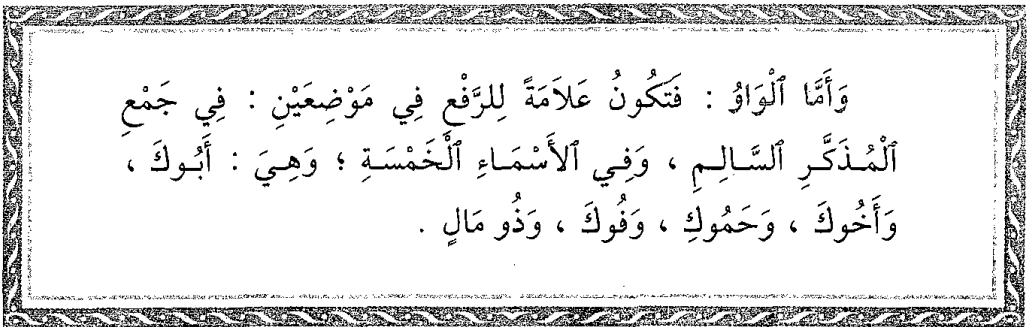 وَأَمَّا ٱلْوَاوُ : فَتَكُونُ عَلَامَةً لِلرَّفْعِ فِي مَوْضِعَيْنِ : فِي جَمْعِ
ٱلْمُذَكَّرِ ٱلسَّالِمِ ، وَفِي ٱلأَسْمَاءِ ٱلْخَمْسَةِ ؛ وَهِيَ : أَبُوكَ ،
وَأَخُوكَ ، وَحَمُوكِ ، وَفُوكَ ، وَذُو مَالٍ .